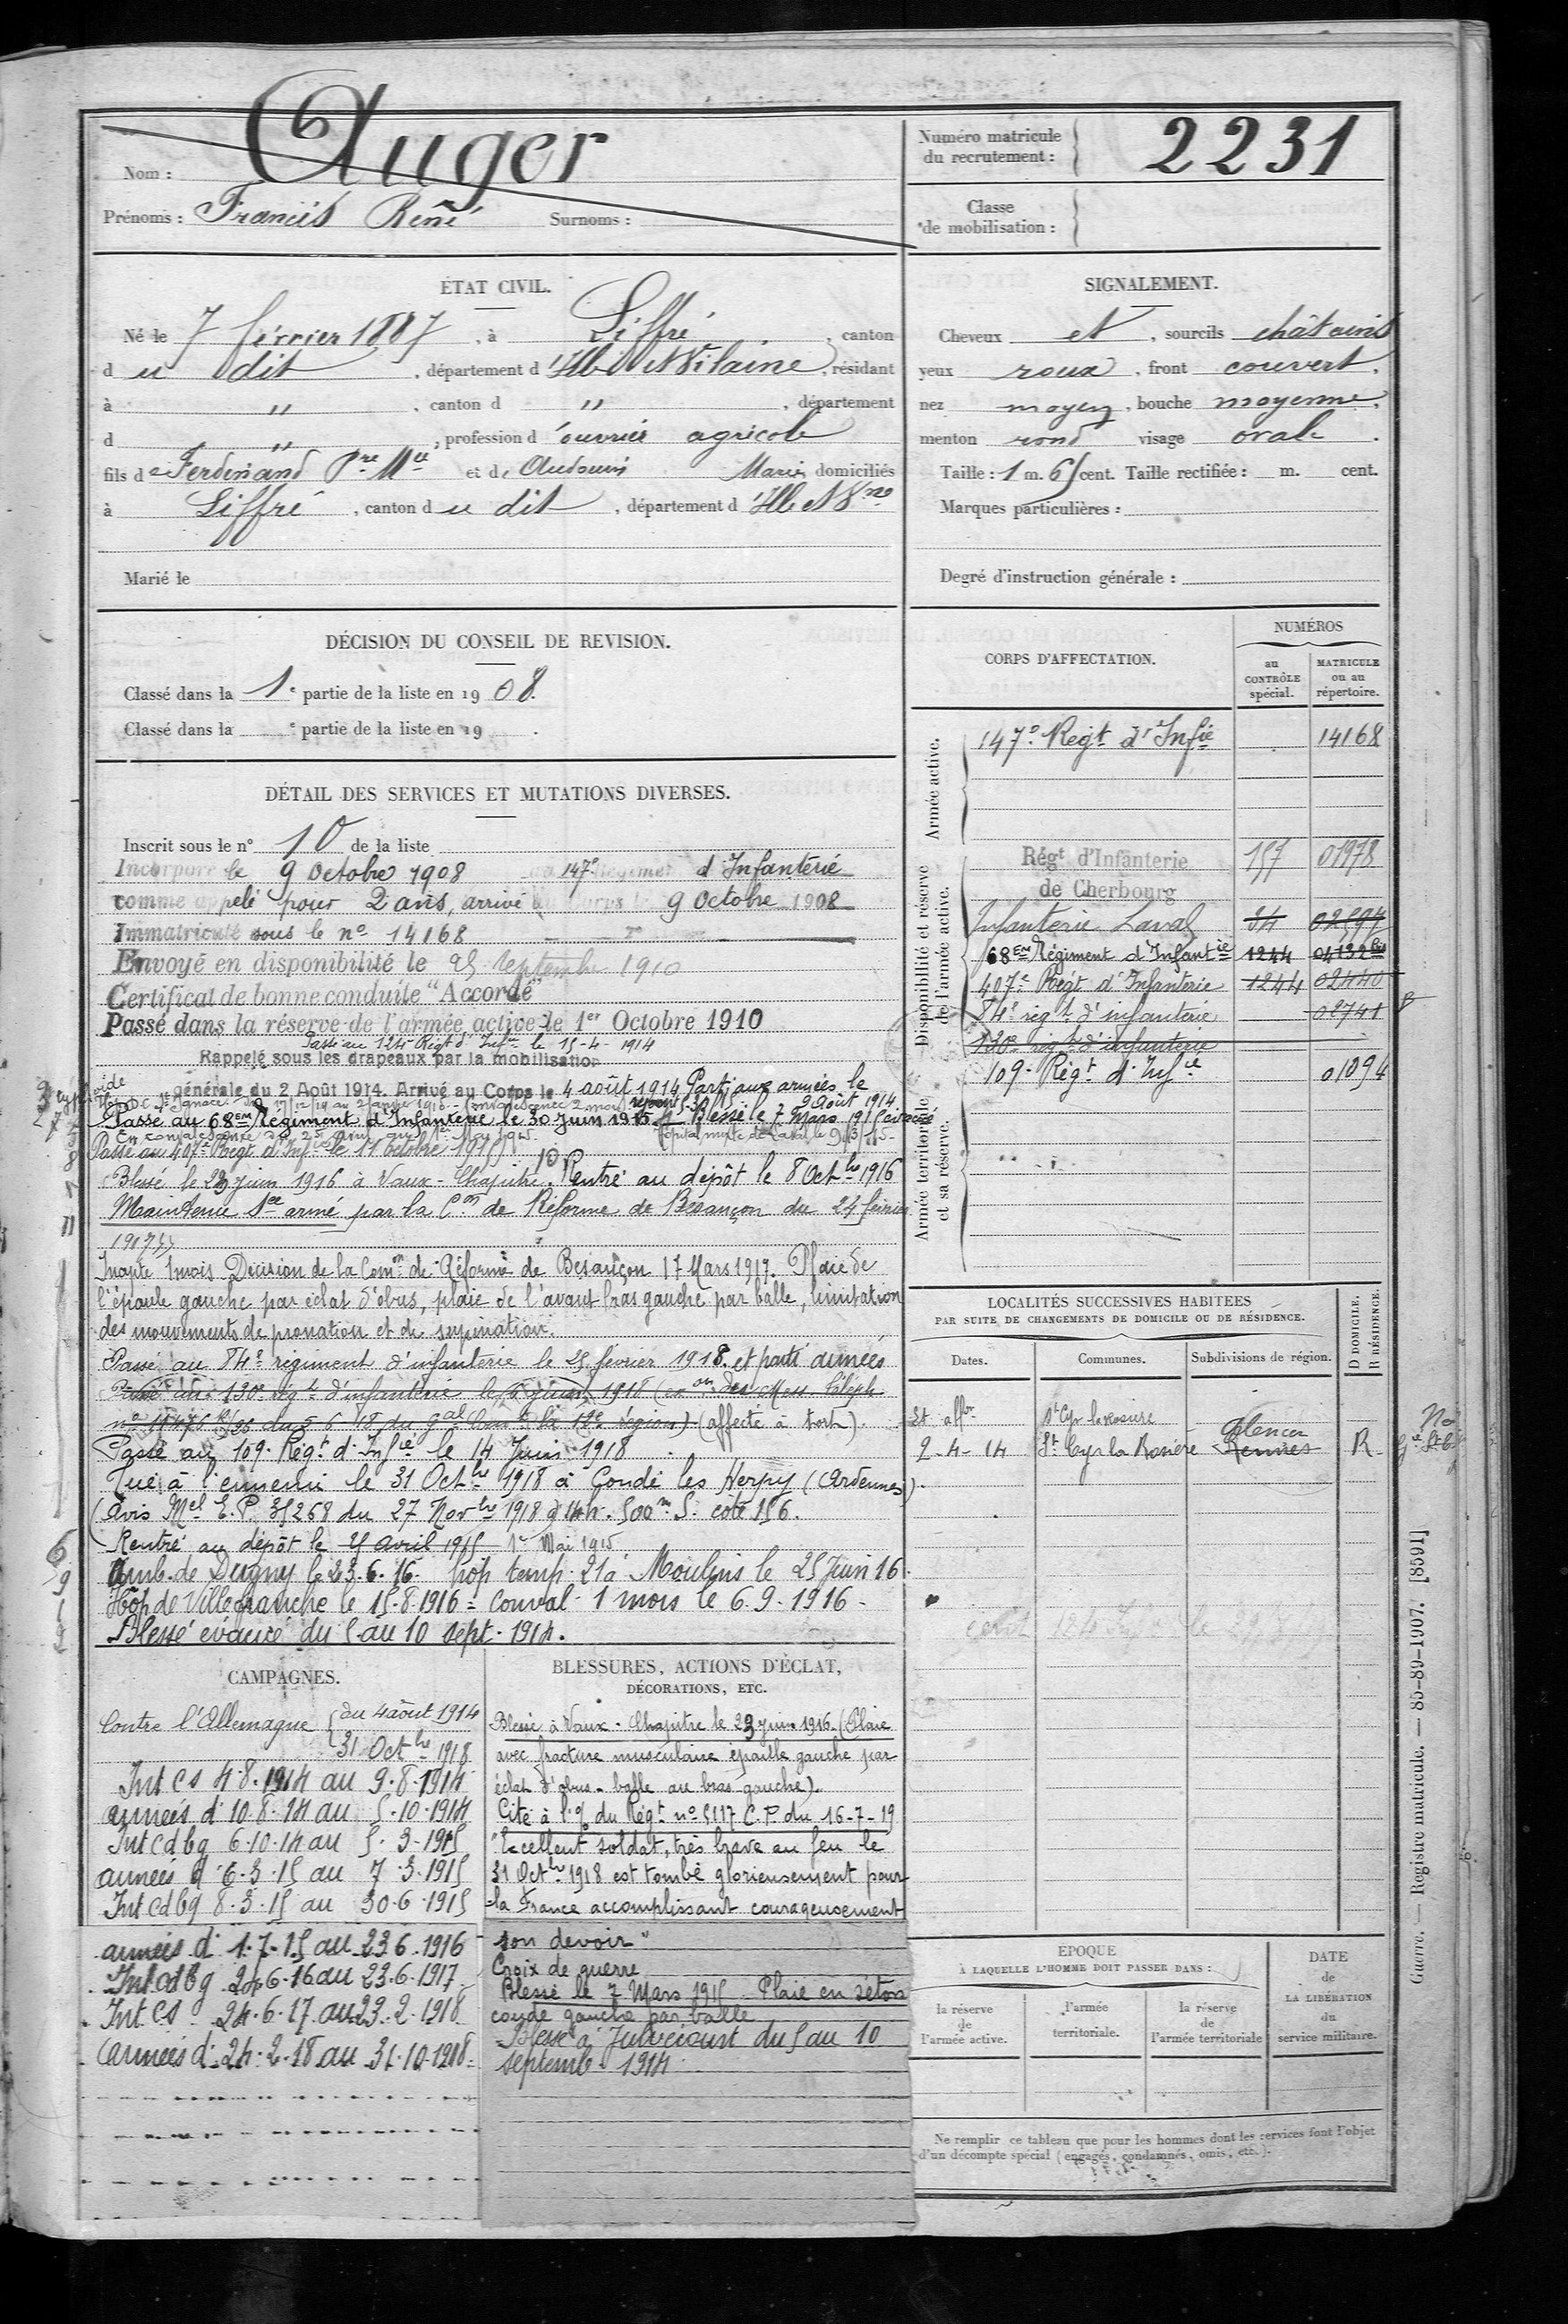 Nom : Auger
Prénoms : Francis René Surnoms :
Numéro matricule du recrutement : 2231
Classe de mobilisation :
ÉTAT CIVIL.
Né le 7 février 1887, à Liffré, canton
du dit, département d'Ille et Vilaine, résidant
à " , canton d " , département
d " , profession d'ouvrier agricole
fils de Ferdinand Pre Mie et de Audouin Marie domiciliés
à Liffré, canton du dit, département d'Ille et Vne
Marié le
SIGNALEMENT.
Cheveux et , sourcils châtains
yeux roux , front couvert ,
nez moyen , bouche moyenne ,
menton rond visage ovale .
Taille : 1 m. 65 cent. Taille rectifiée : m. cent.
Marques particulières :
Degré d'instruction générale :
DÉCISION DU CONSEIL DE REVISION.
Classé dans la 1e partie de la liste en 1908.
Classé dans la e partie de la liste en 19 .
DÉTAIL DES SERVICES ET MUTATIONS DIVERSES.
Inscrit sous le n° 10 de la liste
Incorporé le 9 Octobre 1908 au 147e Régiment d'Infanterie
comme appelé pour 2 ans, arrivé au Corps le 9 Octobre 1908
Immatriculé sous le no 14168
Envoyé en disponibilité le 25 Septembre 1910
Certificat de bonne conduite "Accordé"
Passé dans la réserve de l'armée active le 1er Octobre 1910
Passé au 124e Régt d'Infrie le 15-4-1914
Rappelé sous les drapeaux par la mobilisation
générale du 2 Août 1914. Arrivé au Corps le 4 août 1914 Parti aux armées le
9 Août 1914
Passé au 68em Régiment d'Infanterie le 30 Juin 1915 Blessé le 7 Mars 1915 évacué
En convalescence du 25 avril au 1er Mai 1915. Hôpital mixte de Laval, le 9/3/15
Passé au 407e Régt d'Infrie le 11 octobre 1915
Blessé le 23 juin 1916 à Vaux-Chapitre. Rentré au dépôt le 8 Octbre 1916
Maintenu Sce armé par la Con de Réforme de Besançon du 24 février
1917
Inapte 1 mois Décision de la Comon de Réforme de Besançon 17 Mars 1917. Plaie de
l'épaule gauche par éclat d'obus, plaie de l'avant bras gauche par balle, limitation
des mouvements de pronation et de supination.
Passé au 84e régiment d'infanterie le 25 février 1918. et parti armées
Passé au 130e régt d'infanterie le 6 juin 1918 (exon des Mess. téléph.
(affecté à tort).
Passé au 109e Régt d'Infie le 14 Juin 1918
Tué à l'ennemi le 31 Octbre 1918 à Condé les Herpy (Ardennes).
(Avis Mel E.P. 35268 du 27 Novbre 1918 500m S. côte 156.
Rentré au dépôt le 25 avril 1915 1er Mai 1915
Amb. de Dugny le 23.6.16. hôp temp. 21 à Moulins le 25 Juin 16.
Hôp de Villefranche le 15.8.1916 = Conval. 1 mois le 6.9.1916.
Blessé évacué du 5 au 10 sept. 1914.
CORPS D'AFFECTATION.
NUMÉROS
au CONTRÔLE spécial.
MATRICULE ou au répertoire.
Armée active.
147e Régt d'Infie 14168
Disponibilité et réserve de l'armée active.
Régt d'Infanterie 157 01978
de Cherbourg
Infanterie Laval 34 02597
68em Régiment d'Infantie 1244 04132bis
407e Régt d'Infanterie 1244 02440
84e régt d'infanterie 02741
130e régt d'infanterie
109e Régt d'Infie 01094
Armée territoriale et sa réserve.
LOCALITÉS SUCCESSIVES HABITÉES
PAR SUITE DE CHANGEMENTS DE DOMICILE OU DE RÉSIDENCE.
Dates. Communes. Subdivisions de région. D DOMICILE. R RÉSIDENCE.
St Cyr la Rosière
2-4-14 St Cyr la Rosière Rennes Alençon R
CAMPAGNES.
Contre l'Allemagne du 4 août 1914
31 Octbre 1918
Int cs 4.8.1914 au 9.8.1914
armées d 10.8.14 au 5.10.1914
Int cdbg 6.10.14 au 5.3.1915
armées d 6.3.15 au 7.3.1915
Int cdbg 8.3.15 au 30.6.1915
armées d 1.7.15 au 23.6.1916
Int cdbg 24.6.16 au 23.6.1917
Int cs 24.6.17 au 23.2.1918
armées d 24.2.18 au 31.10.1918
BLESSURES, ACTIONS D'ÉCLAT,
DÉCORATIONS, ETC.
Blessé à Vaux-Chapitre le 23 juin 1916. (Plaie
avec fracture musculaire épaule gauche par
éclat d'obus - balle au bras gauche).
Cité à l'o/ du Régt no 5117 C.P. du 16-7-19
"Excellent soldat, très brave au feu le
31 Octbre 1918 est tombé glorieusement pour
la France accomplissant courageusement
son devoir"
Croix de guerre
Blessé le 7 Mars 1915 Plaie en séton
coude gauche par balle
Blessé à Julvécourt du 5 au 10
septemb. 1914
ÉPOQUE
À LAQUELLE L'HOMME DOIT PASSER DANS :
la réserve de l'armée active.
l'armée territoriale.
la réserve de l'armée territoriale
DATE de LA LIBÉRATION du service militaire.
Ne remplir ce tableau que pour les hommes dont les services font l'objet
d'un décompte spécial (engagés, condamnés, omis, etc.).
Guerre. — Registre matricule. — 85-89-1907. [8591]